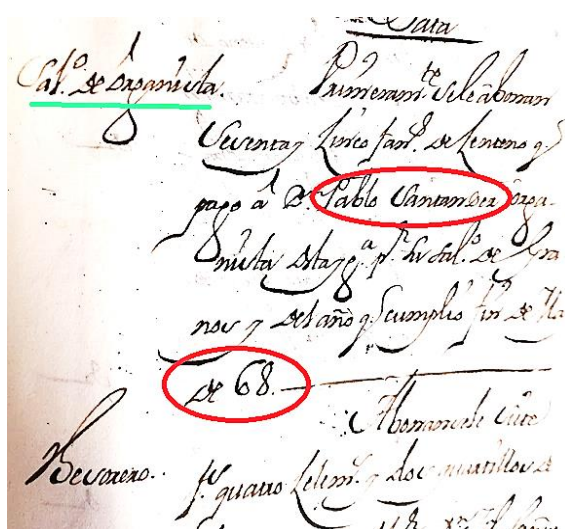 Data
Sal.º de Organista. Primeram.te se le abonan
Setenta y Cinco fan.s de Centeno q.e
pago a D. Pablo Santander Orga-
nista desta Yg.a p.r su sal.º de Gra
nos y del año q.e cumplio fin de
de 68.
Abonansele
Becerrero. f.s quatro Celem.s y dos quartillos de